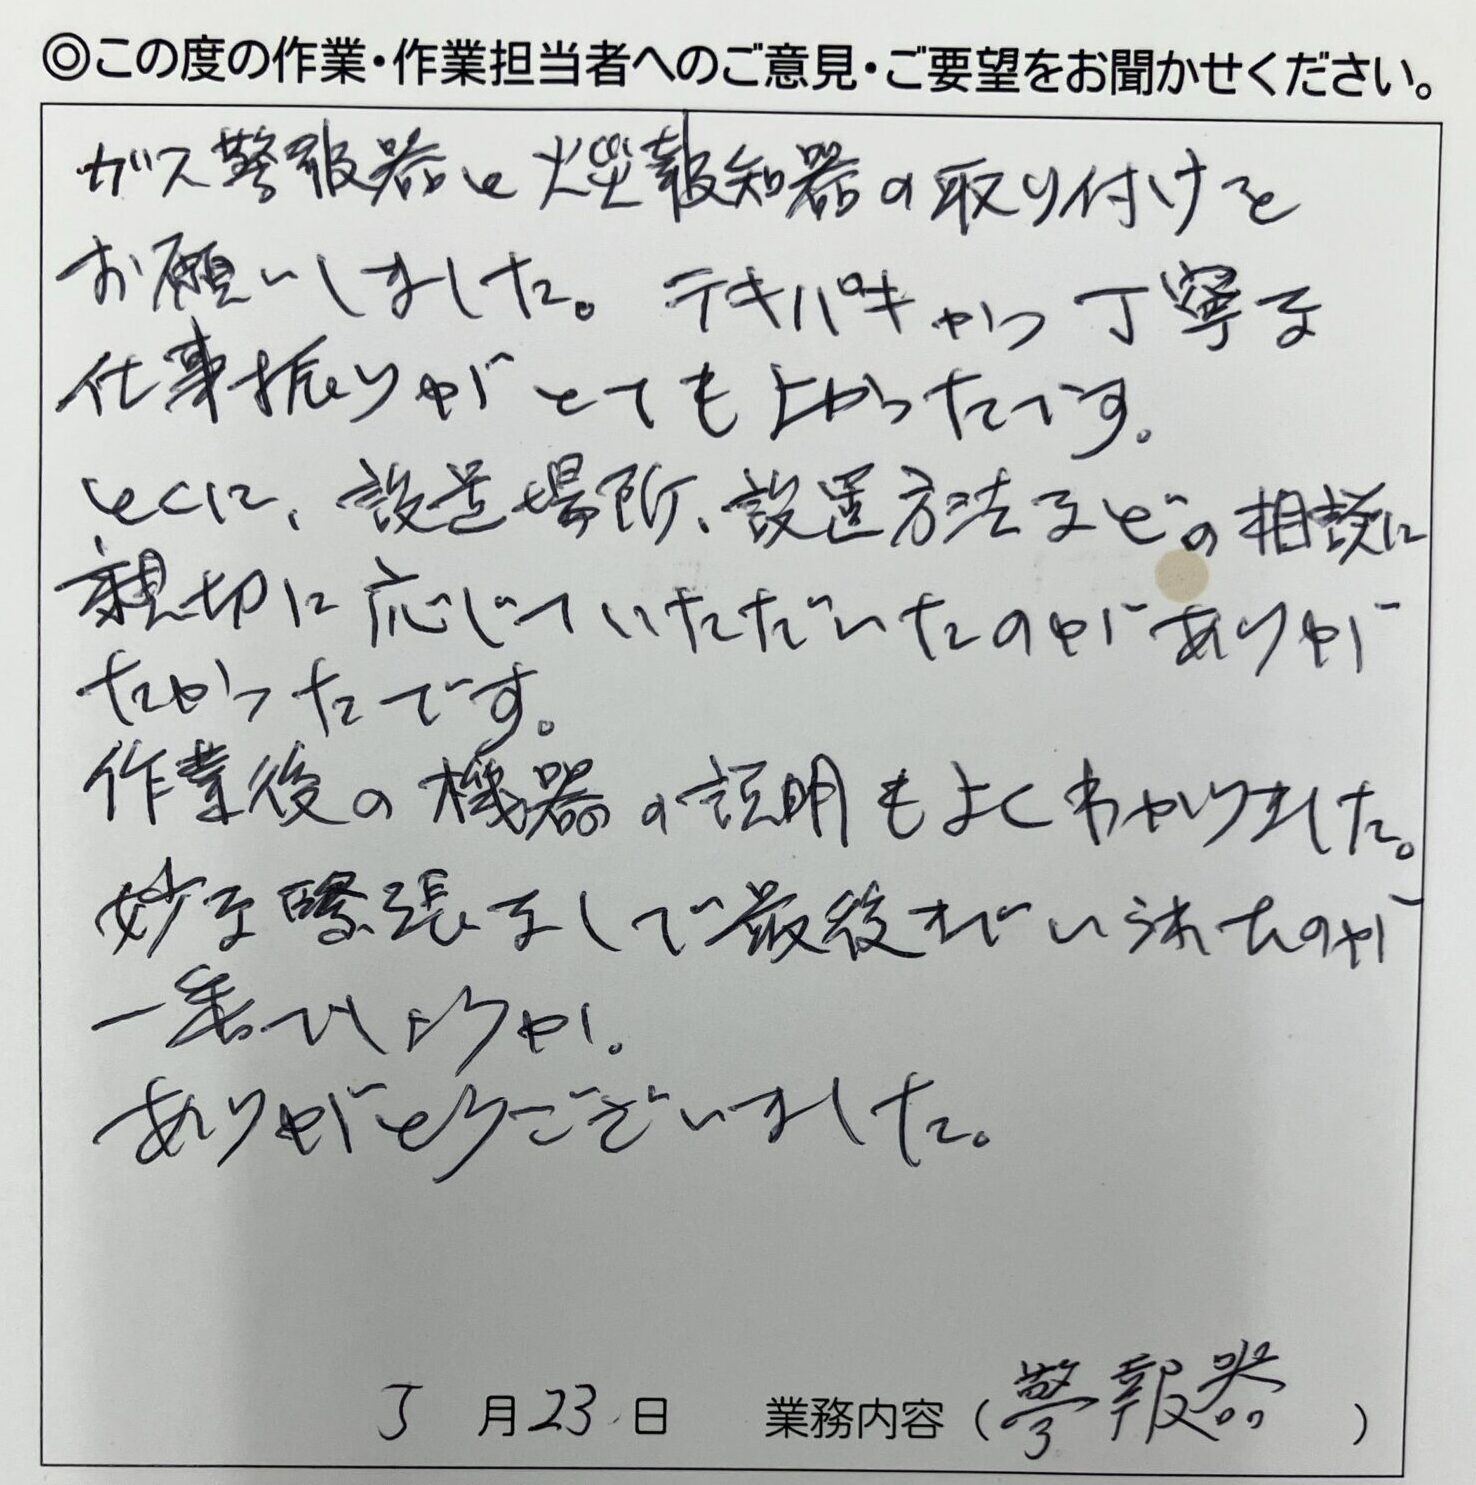 ◎この度の作業・作業担当者へのご意見・ご要望をお聞かせください。
ガス警報器と火災報知器の取り付けを
お願いしました。テキパキかつ丁寧な
仕事振りがとてもよかったです。
とくに、設置場所、設置方法などの相談に
親切に応じていただいたのがありが
たかったです。
作業後の機器の説明もよくわかりました。
妙な緊張なしで最後までいられたのが
一番でしょうか。
ありがとうございました。
5月23日 業務内容(警報器)